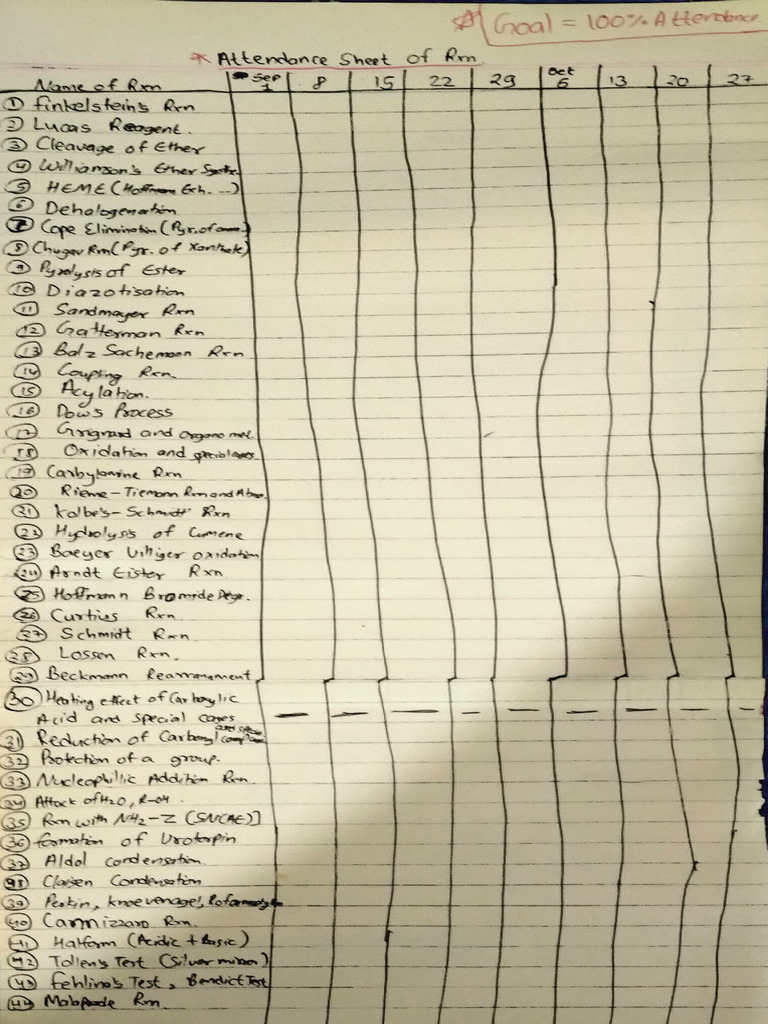 Goal = 100% Attendance
* Attendance Sheet of Rxn
Name of Rxn Sep 1 8 15 22 29 Oct 6 13 20 27
① Finkelstein's Rxn
② Lucas Reagent.
③ Cleavage of Ether
④ Williamson's Ether
⑤ HEME (Hoffmann Exh. ...)
⑥ Dehalogenation
⑦ Cope Elimination (Pyr. of
⑧ Chugav Rxn (Pyr. of Xanthate)
⑨ Pyrolysis of Ester
⑩ Diazotisation
⑪ Sandmayer Rxn
⑫ Gatterman Rxn
⑬ Balz Rxn
⑭ Coupling Rxn.
⑮ Acylation.
⑯ Dow's Process
⑰ Grignard and organo met.
⑱ Oxidation and special cases
⑲ Carbylamine Rxn
⑳ Rieme-Tiemann Rxn and
㉑ Kolbe's-Schmidt Rxn
㉒ Hydrolysis of Cumene
㉓ Baeyer Villiger oxidation
㉔ Arndt Eister Rxn
㉕ Hoffmann Bromide Degr.
㉖ Curtius Rxn.
㉗ Schmidt Rxn.
㉘ Lossen Rxn.
㉙ Beckmann Rearrangement
㉚ Heating effect of Carboxylic
Acid and special cases
㉛ Reduction of Carbonyl
㉜ Protection of a group.
㉝ Nucleophillic Addition Rxn.
㉞ Attack of H2O, R-OH.
㉟ Rxn with NH2-Z [SN(AE)]
㊱ formation of Urotorpin
㊲ Aldol condensation.
38 Claisen Condensation
㊴ Perkin, knoevenagel,
㊵ Cannizzaro Rxn.
㊶ Haliform (Acidic + Basic)
㊷ Tollen's Test (Silver mirror)
㊸ Fehling's Test, Benedict Test
㊹ Malaprade Rxn